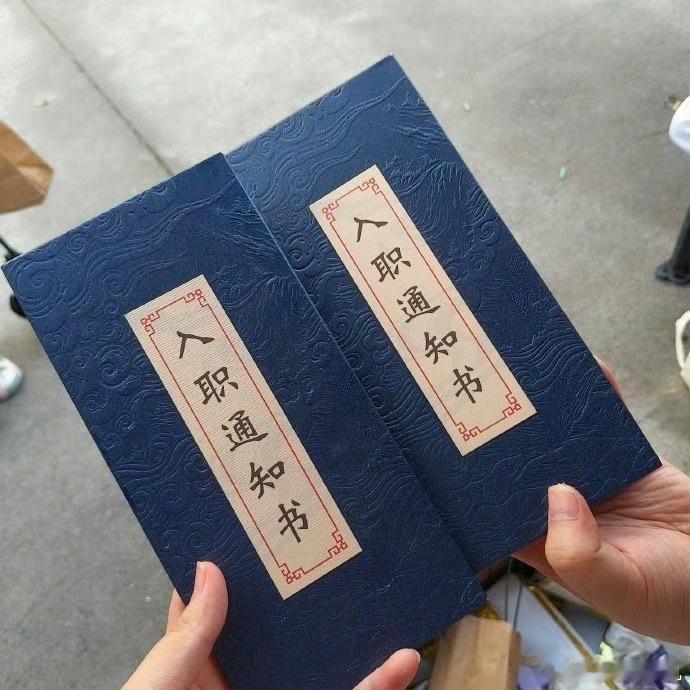 入职通知书
入职通知书